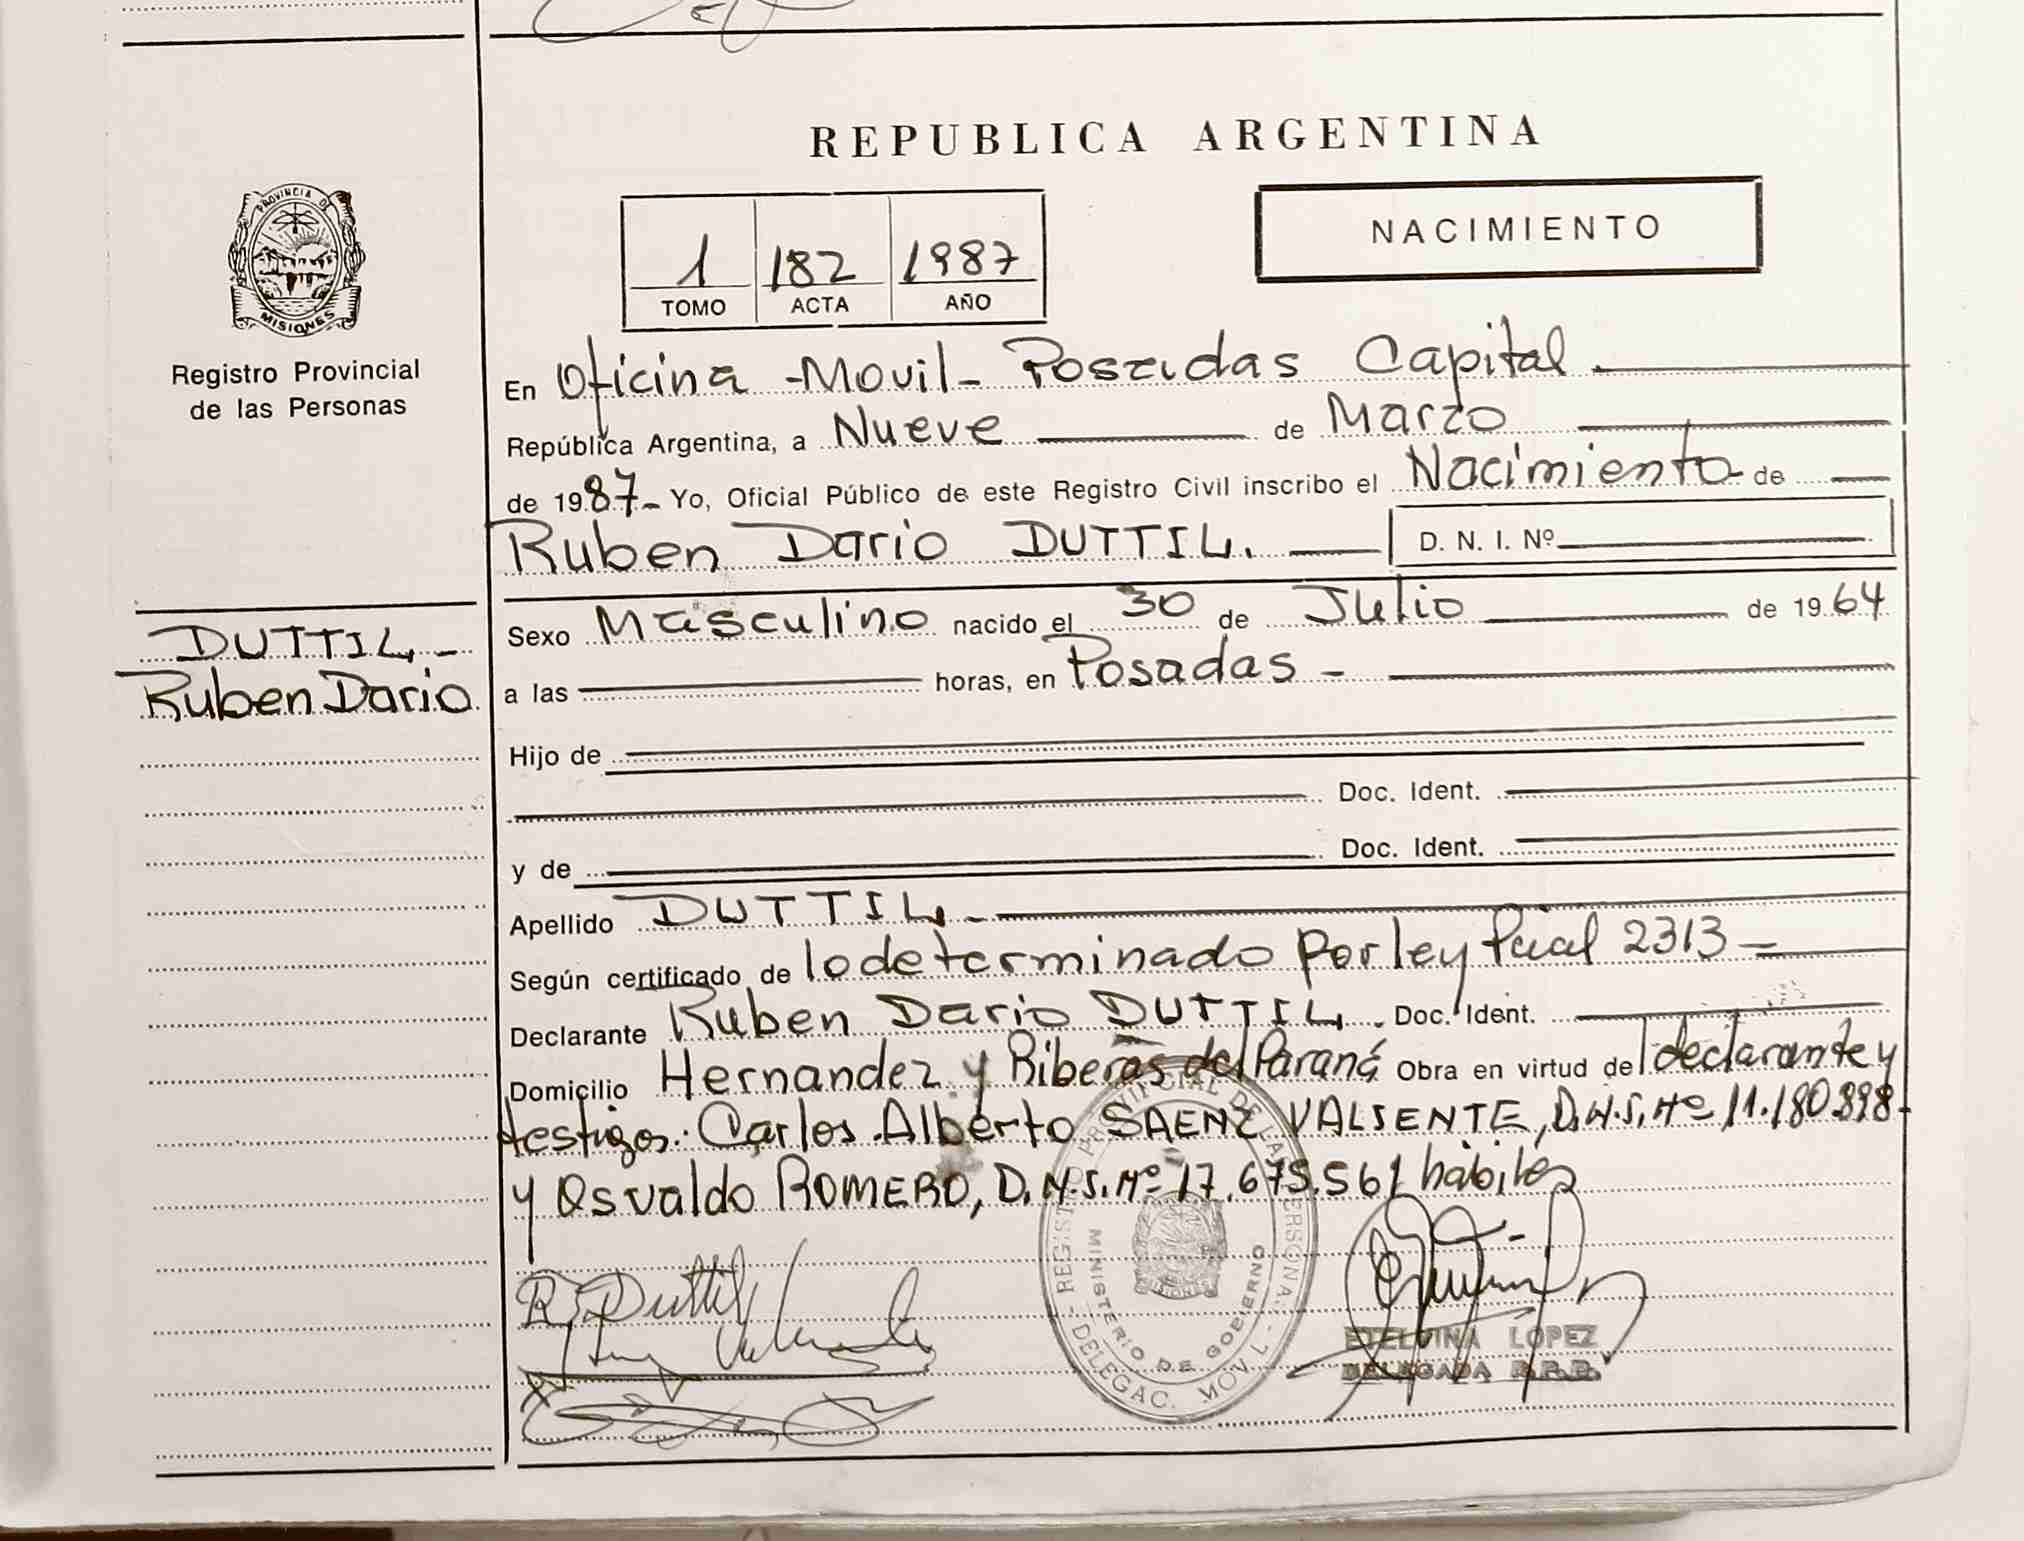 REPUBLICA ARGENTINA
NACIMIENTO
1 182 1987
TOMO ACTA AÑO
PROVINCIA DE
MISIONES
Registro Provincial
de las Personas
DUTTIL.-
Ruben Dario
En Oficina -Movil- Posadas Capital
República Argentina, a Nueve de Marzo
de 1987- Yo, Oficial Público de este Registro Civil inscribo el Nacimiento de
Ruben Dario DUTTIL. D. N. I. Nº
Sexo Masculino nacido el 30 de Julio de 1964
a las horas, en Posadas -
Hijo de
Doc. Ident.
y de Doc. Ident.
Apellido DUTTIL.-
Según certificado de lo determinado por ley Pcial 2313-
Declarante Ruben Dario DUTTIL. Doc. Ident.
Domicilio Hernandez y Riberas del Paraná Obra en virtud de declarante y
testigos: Carlos Alberto SAENZ VALIENTE, D.N.I. Nº 11.180.898-
y Osvaldo ROMERO, D.N.I. Nº 17.675.561 hábiles
R. Duttil
REGISTRO PROVINCIAL DE LAS PERSONAS
MINISTERIO DE GOBIERNO
- DELEGAC. MOVIL -
ETELVINA LOPEZ
DELEGADA R.P.P.